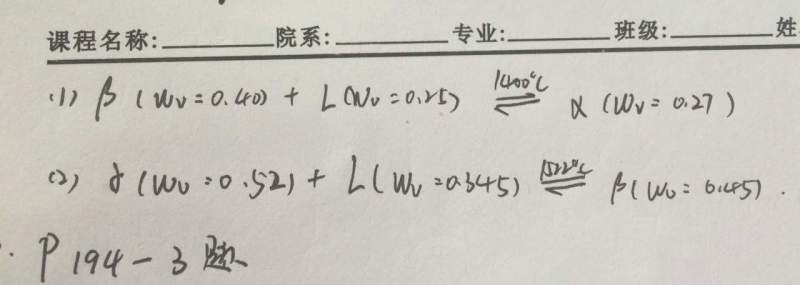 课程名称:________院系:________专业:________班级:________姓
(1) β (Wv=0.40) + L(Wv=0.25) ⇌1400℃ α (Wv=0.27)
(2) δ(Wv=0.52) + L(Wv=0.345) ⇌1522℃ β(Wv=0.45).
P194-3题